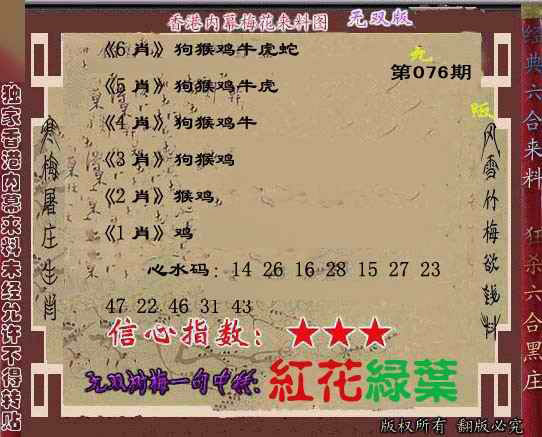 香港内幕梅花来料图 无双版
《6 肖》狗猴鸡牛虎蛇
《5 肖》狗猴鸡牛虎
《4 肖》狗猴鸡牛
《3 肖》狗猴鸡
《2 肖》猴鸡
《1 肖》鸡
第076期
心水码: 14 26 16 28 15 27 23
47 22 46 31 43
信心指数: ★★★
一句中特:
紅花綠葉
独家香港内幕来料未经允许不得转贴
寒梅屠庄生肖
风雪竹梅欲钱料
经典六合来料 狂杀六合黑庄
版权所有 翻版必究